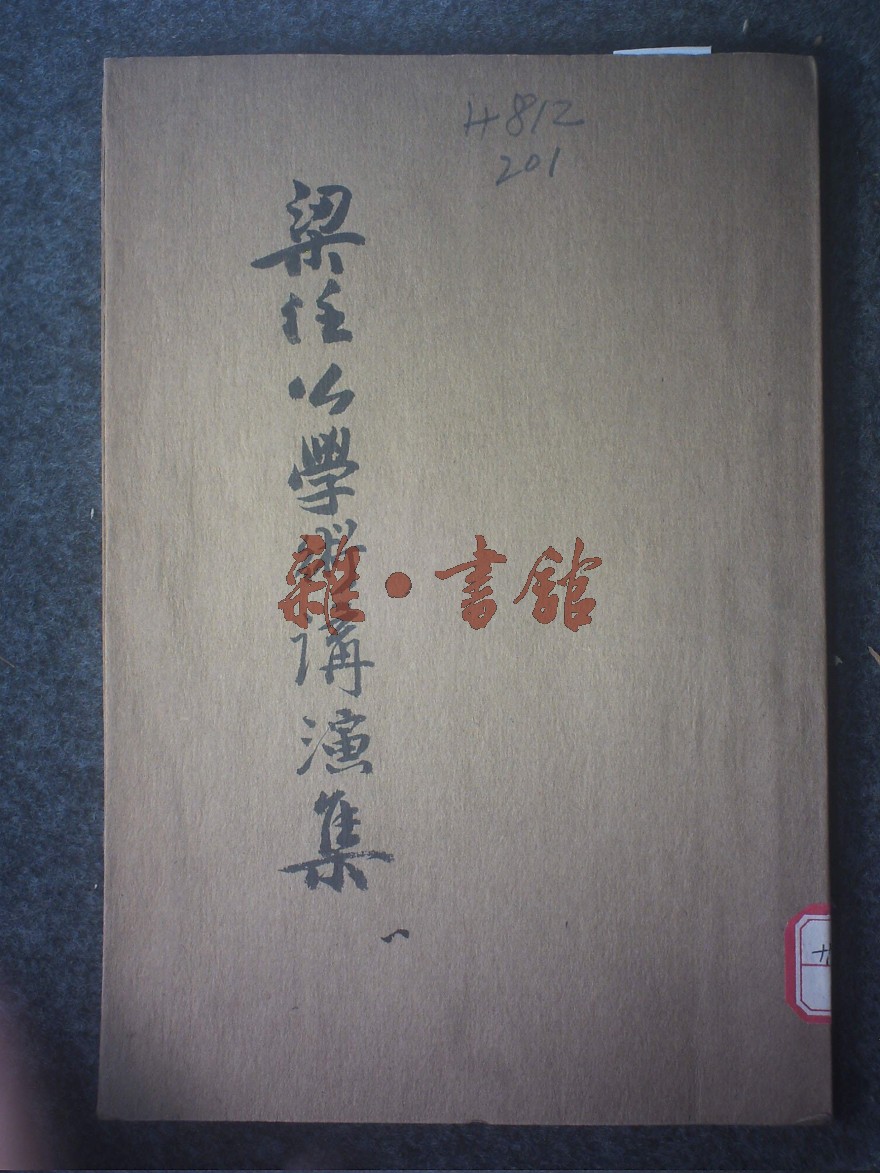 H812
201
梁任公學術講演集
雜·書館